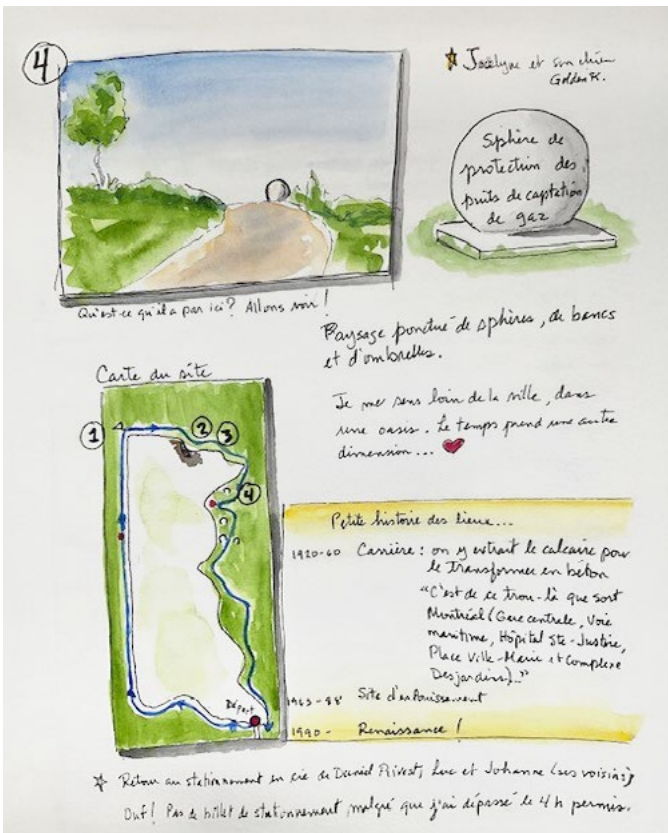 4
★ Jocelyne et son chien
Golden R.
Sphère de
protection des
puits de captation
de gaz
Qu'est-ce qu'il a par ici? Allons voir!
Paysage ponctué de sphères, de bancs
et d'ombrelles.
Je me sens loin de la ville, dans
une oasis. Le temps prend une autre
dimension... ❤
Carte du site
1
2
3
4
Départ
Petite histoire des lieux...
1920-60 Carrière : on y extrait le calcaire pour
le transformer en béton
"C'est de ce trou-là que sort
Montréal (Gare centrale, Voie
maritime, Hôpital Ste-Justine,
Place Ville-Marie et Complexe
Desjardins)..."
Site d'enfouissement
1990- Renaissance!
☆ Retour au stationnement en cie de Daniel Privest, Luc et Johanne (ses voisins)
Ouf! Pas de billet de stationnement, malgré que j'ai dépassé le 4 h permis.